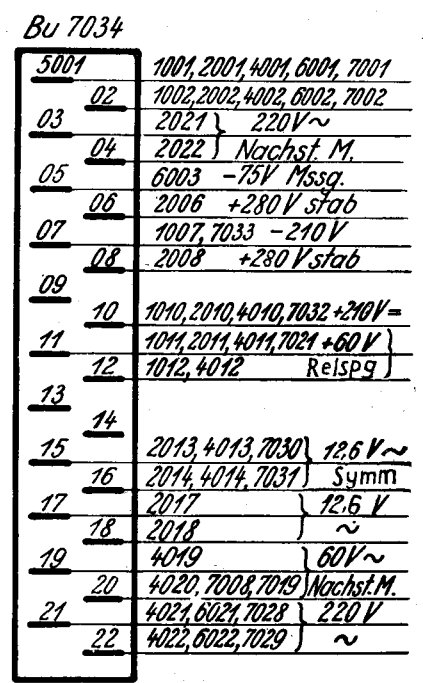 Bu 7034
5001 1001, 2001, 4001, 6001, 7001
02 1002, 2002, 4002, 6002, 7002
03 2021 } 220V~
04 2022 } Nachst. M.
05 6003 -75V Mssg.
06 2006 +280V stab
07 1007, 7033 -210V
08 2008 +280V stab
09
10 1010, 2010, 4010, 7032 +210V=
11 1011, 2011, 4011, 7021 +60V }
12 1012, 4012 Relspg }
13
14
15 2013, 4013, 7030 } 12,6V~
16 2014, 4014, 7031 } Symm
17 2017 } 12,6 V
18 2018 } ~
19 4019 } 60V~
20 4020, 7008, 7019 } Nachst. M.
21 4021, 6021, 7028 } 220 V
22 4022, 6022, 7029 } ~